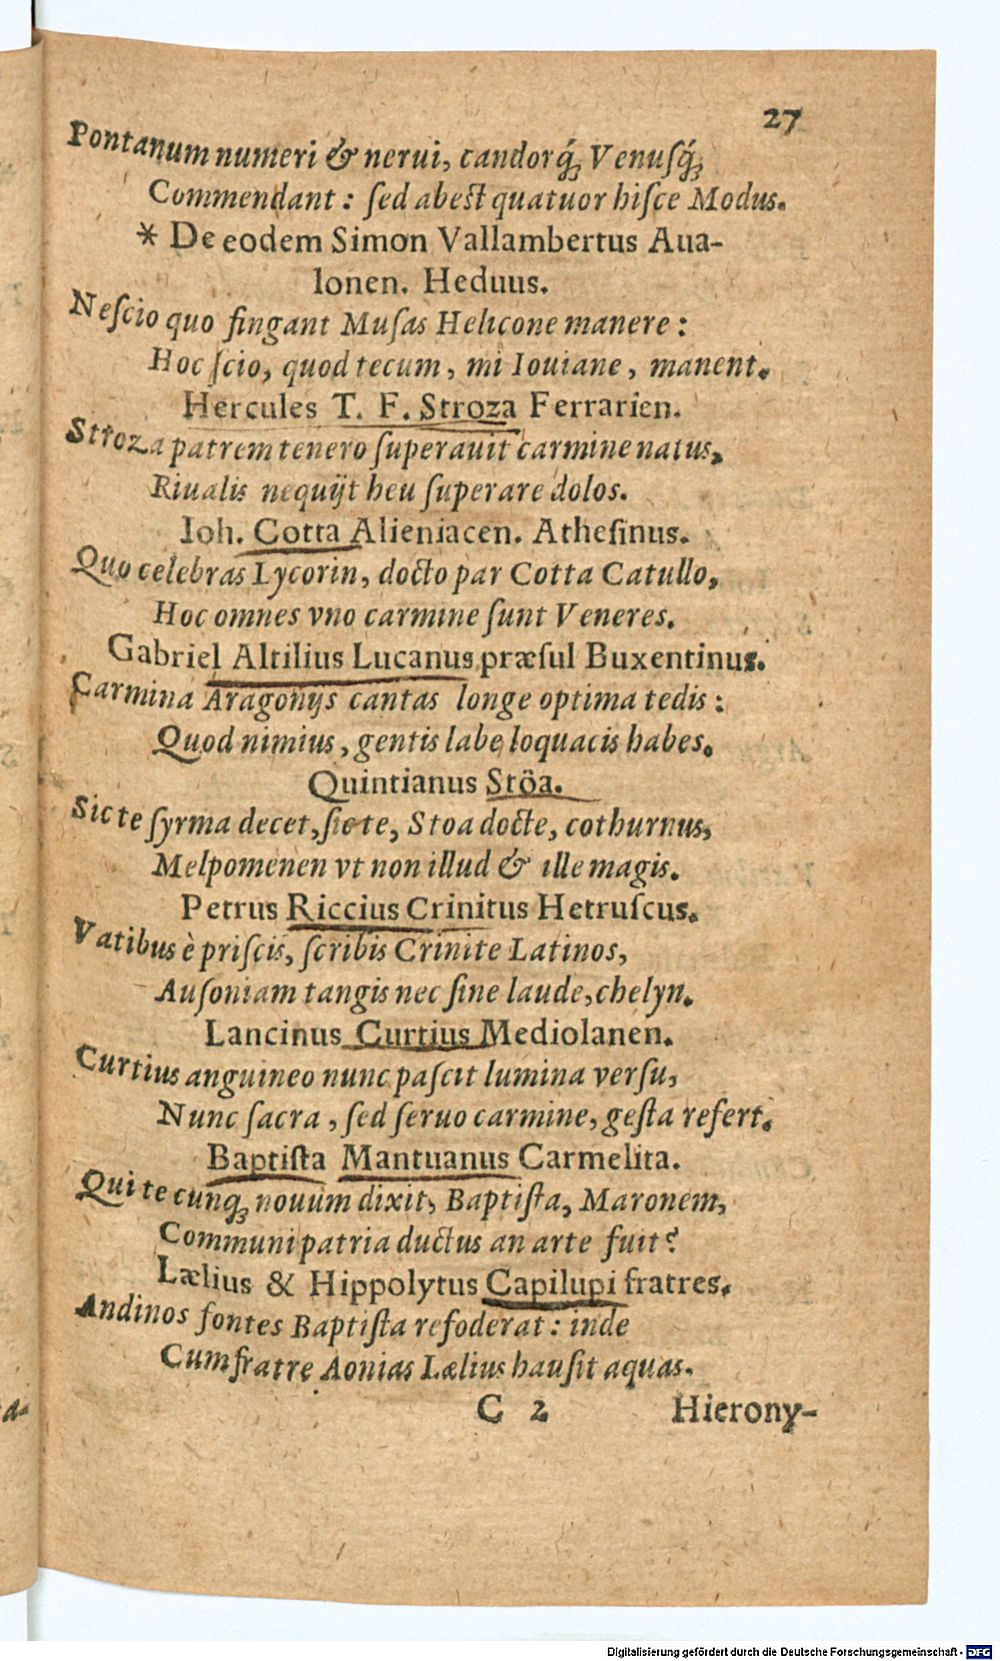 27
Pontanum numeri & nerui, candorq́; Venuſq́;
Commendant: ſed abeſt quatuor hiſce Modus.
* De eodem Simon Vallambertus Aua-
lonen. Heduus.
Neſcio quo fingant Muſas Helicone manere:
Hoc ſcio, quod tecum, mi Iouiane, manent.
Hercules T. F. Stroza Ferrarien.
Stroza patrem tenero ſuperauit carmine natus,
Riualis nequijt heu ſuperare dolos.
Ioh. Cotta Alieniacen. Atheſinus.
Quo celebras Lycorin, docto par Cotta Catullo,
Hoc omnes vno carmine ſunt Veneres.
Gabriel Altilius Lucanus præſul Buxentinus.
Carmina Aragonijs cantas longe optima tedis:
Quod nimius, gentis labe loquacis habes.
Quintianus Stöa.
Sic te ſyrma decet, ſic te, Stoa docte, cothurnus,
Melpomenen vt non illud & ille magis.
Petrus Riccius Crinitus Hetruſcus.
Vatibus è priſcis, ſcribis Crinite Latinos,
Auſoniam tangis nec ſine laude, chelyn.
Lancinus Curtius Mediolanen.
Curtius anguineo nunc paſcit lumina verſu,
Nunc ſacra, ſed ſeruo carmine, geſta refert.
Baptiſta Mantuanus Carmelita.
Qui te cunq; nouum dixit, Baptiſta, Maronem,
Communi patria ductus an arte fuit?
Lælius & Hippolytus Capilupi fratres.
Andinos fontes Baptiſta refoderat: inde
Cum fratre Aonias Lælius hauſit aquas.
C 2 Hierony-
Digitalisierung gefördert durch die Deutsche Forschungsgemeinschaft - DFG